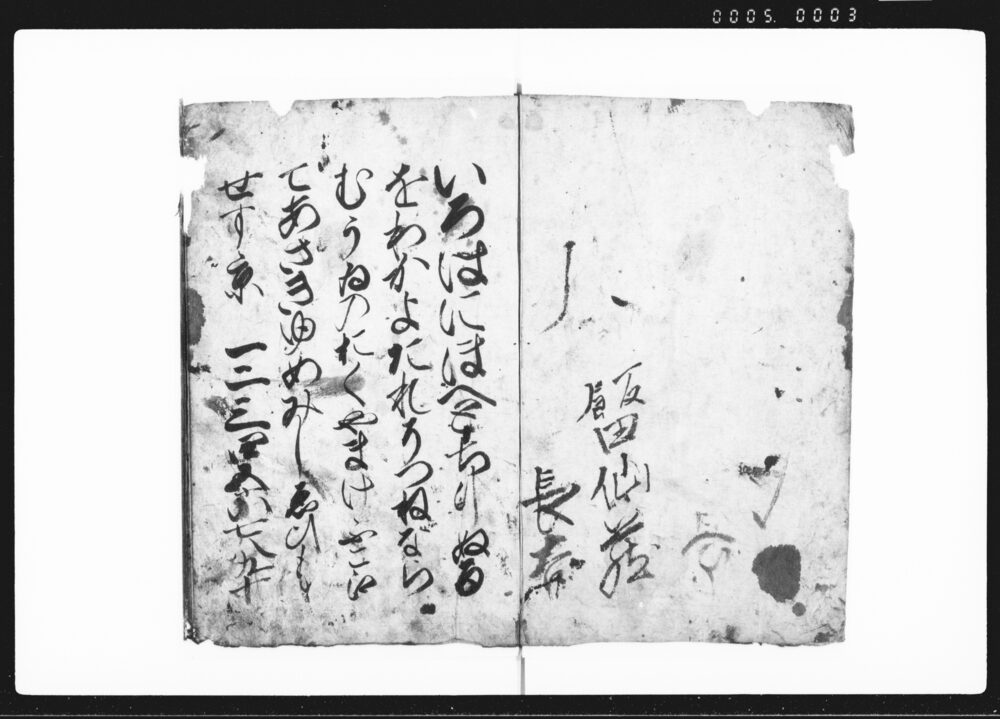 0005. 0003
飯田仙蔵
長
いろはにほへとちりぬる
をわかよたれそつねなら
むうゐのおくやまけふこ江
てあさきゆめみしゑひも
せす京 一二三四五六七八九十